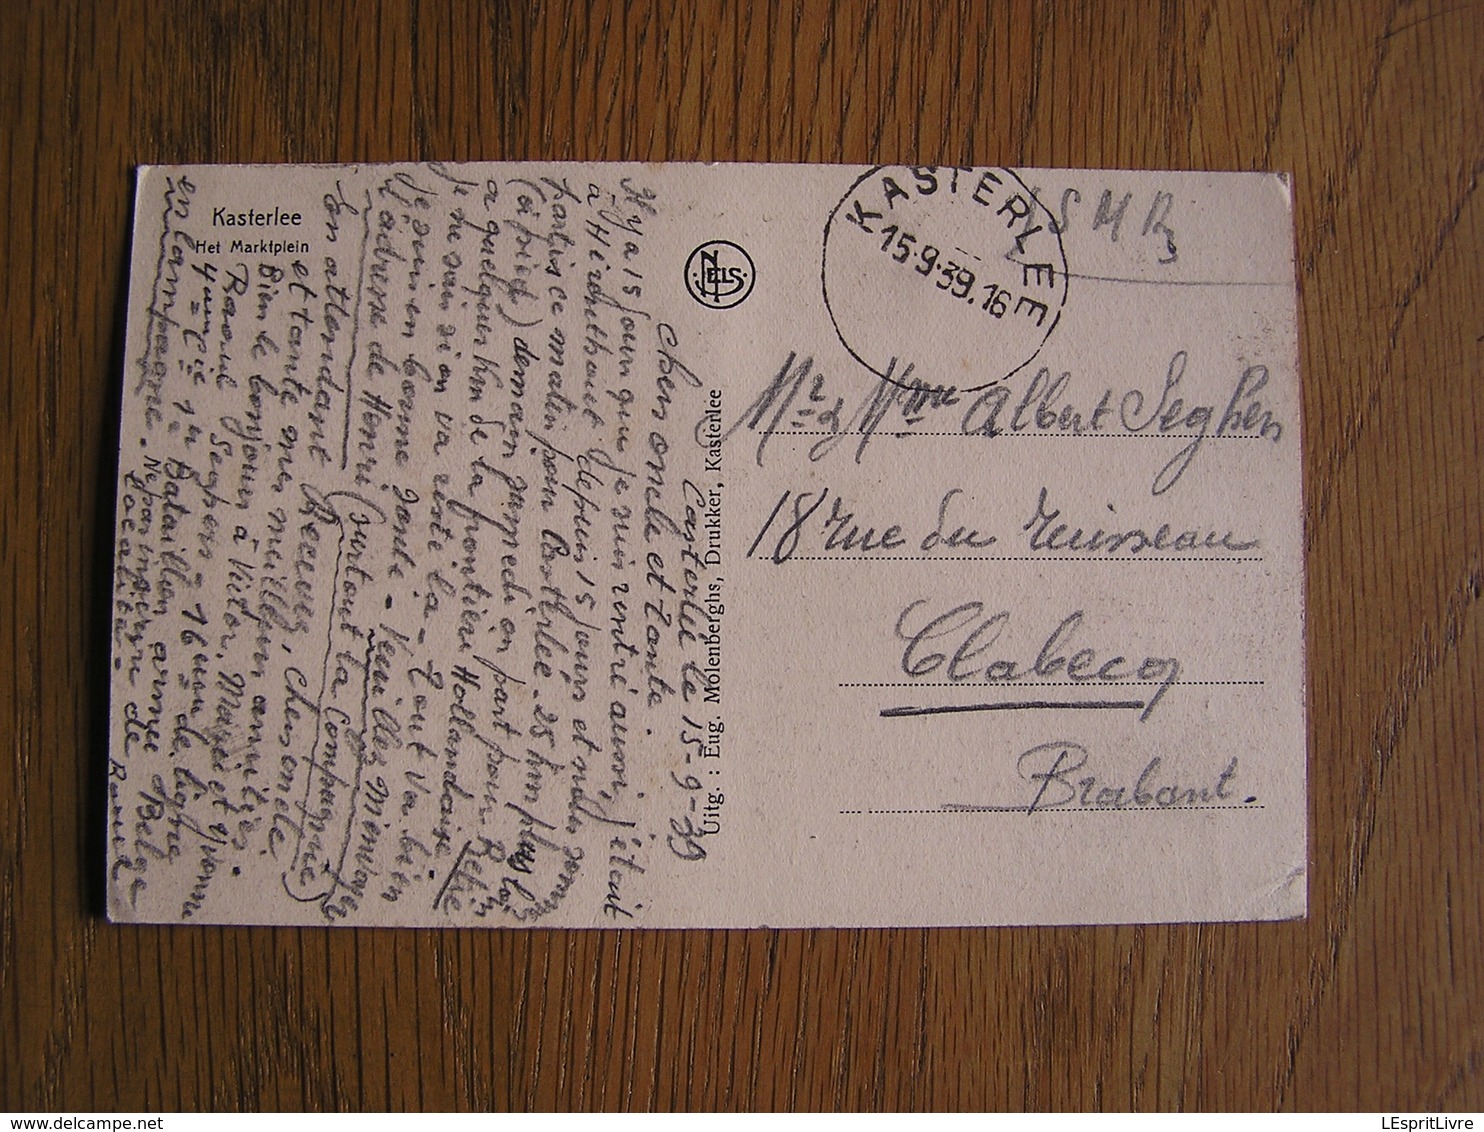 Kasterlee
Het Marktplein
Casterlée le 15-9-39
Chers oncle et tante.
Il y a 15 jours que je suis rentré aussi, j'étais
à depuis 15 jours et nous som
partis ce matin pour Casterlée. 25 km plus loi
(à pied) demain samedi on part pour Rethie
a quelques Km de la frontière Hollandaise
je ne sais si on va resté la - Tout va bien
je suis en bonne santé - Veuillez m'envoyer
l'adresse de Henri (surtout la Compagnie)
En attendant Recevez, chers oncle
et tante mes meilleurs amitiés.
Bien le bonjour à Victor, Maria et Yvonne
Raoul Seghers - 16em de ligne
4em Cie 1r Bataillon armée Belge
en campagne. Ne pas mettre de
localité -
Raoul
NELS
Uitg. : Eug. Molenberghs, Drukker, Kasterlee
KASTERLEE
15.9.39.16
S M B
Mr & Mme Albert Seghers
18 rue du ruisseau
Clabecq
Brabant.
LEspritLivre